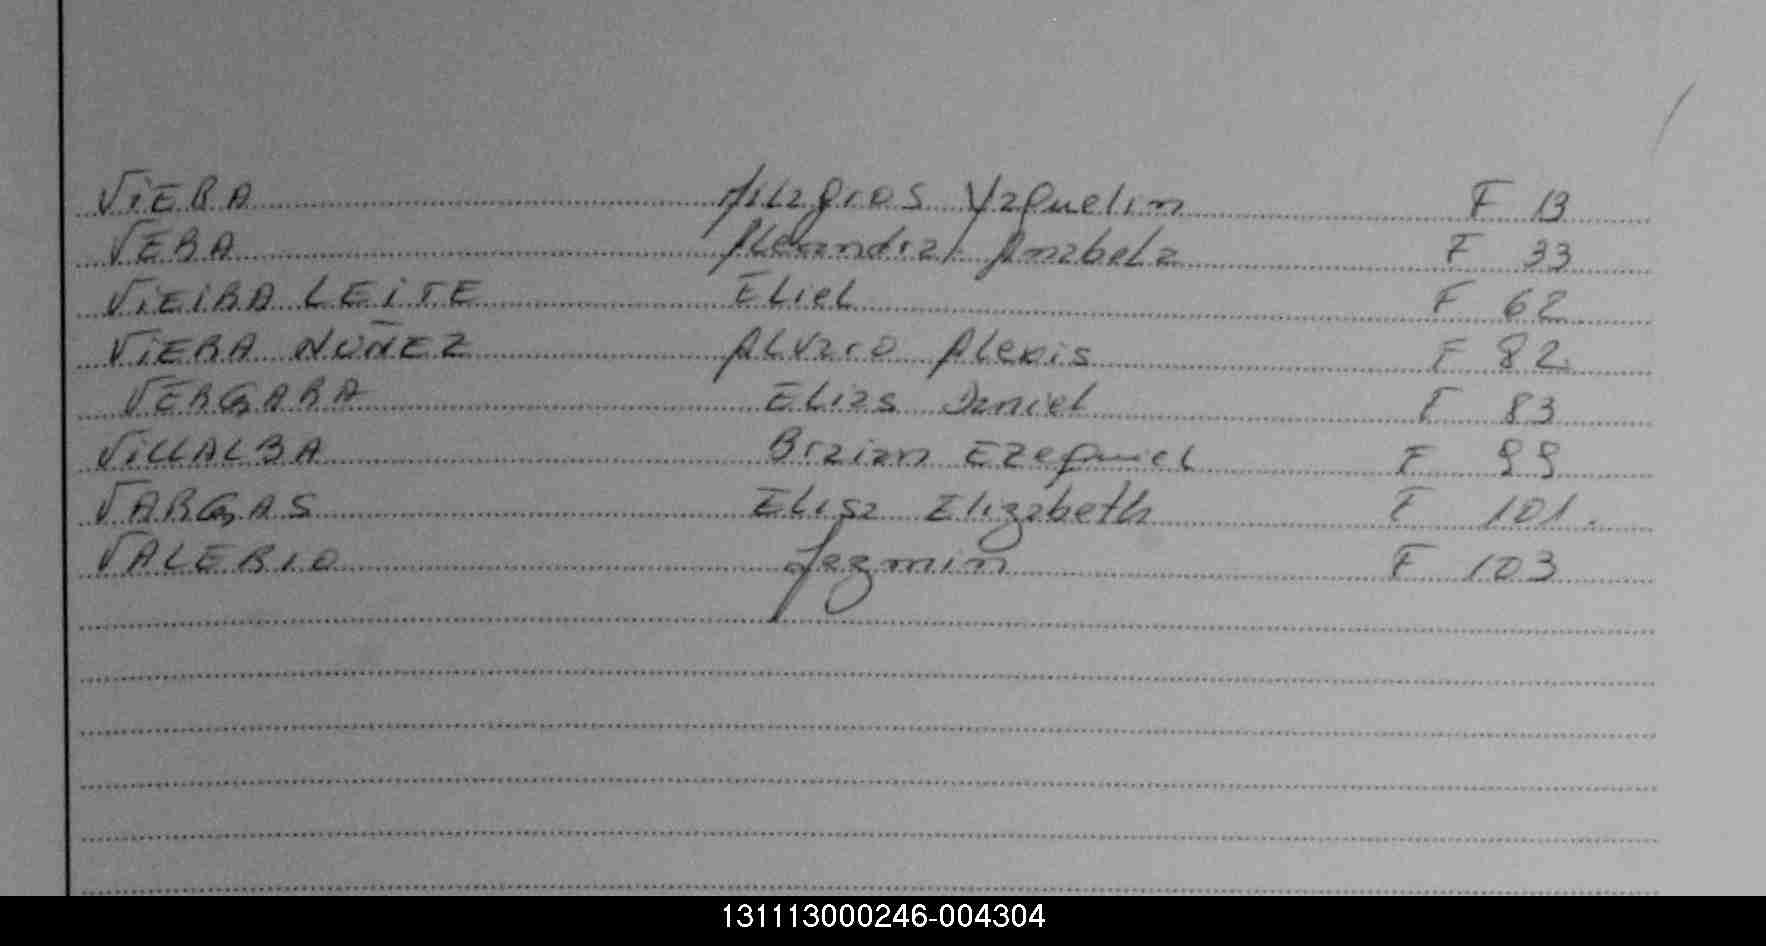 VIERA Milagros Yaquelin F 13
VERA Alexandra Anabela F 33
VIEIRA LEITE Eliel F 62
VIERA NUÑEZ Alvaro Alexis F 82
VERGARA Elias Daniel F 83
VILLALBA Braian Ezequiel F 99
VARGAS Elisa Elizabeth F 101.
VALERIO Jazmin F 103
131113000246-004304